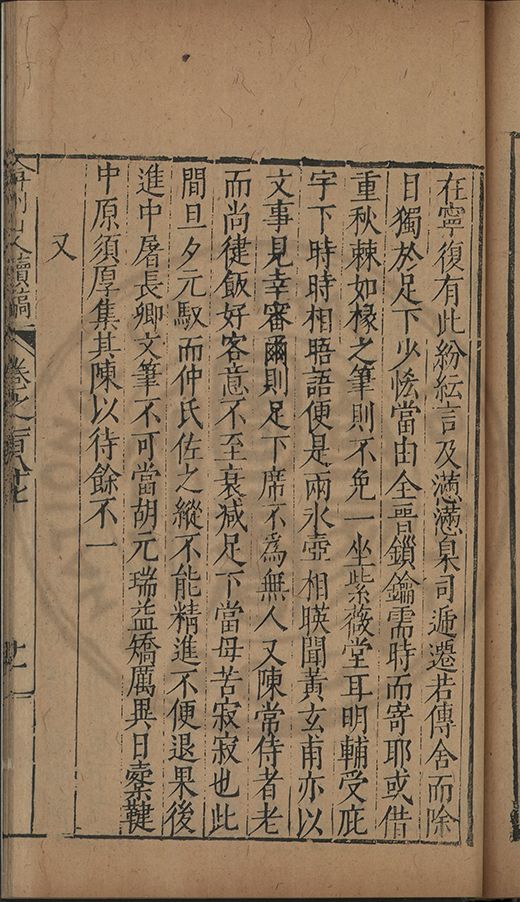 在寧復有此紛紜言及懣懣臬司遞遷若傳舍而除
目獨於足下少恡當由全晋鎖鑰需時而寄耶或借
重秋棘如椽之筆則不免一坐紫薇堂耳明輔受庇
宇下時時相晤語便是兩氷壺相暎聞黃玄甫亦以
文事見幸審爾則足下席不為無人又陳常侍者老
而尚健飯好客意不至衰減足下當毋苦寂寂也此
間旦夕元馭而仲氏佐之縱不能精進不便退果後
進中屠長卿文筆不可當胡元瑞益矯厲異日櫜鞬
中原須厚集其陳以待餘不一
又
弇州山人續稿
卷之一百八十七
廿一